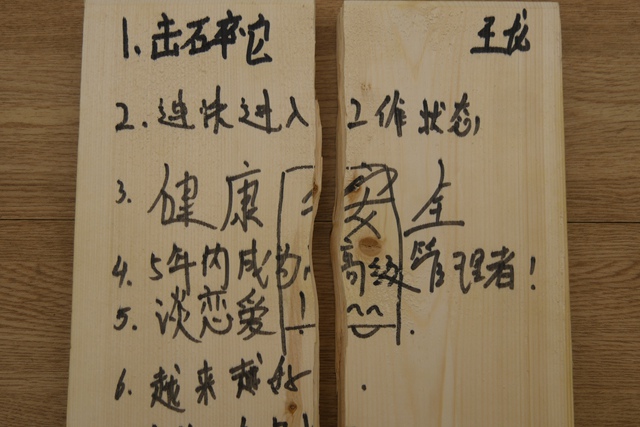 1. 击碎它 王龙
2. 速快进入工作状态,
3. 健康 安全
4. 5年内成为高级管理者!
5. 谈恋爱!
6. 越来越好.